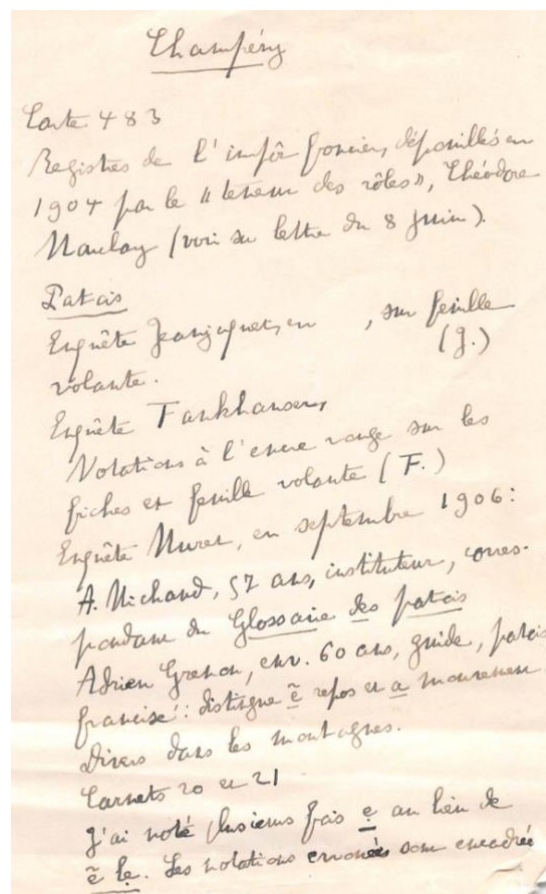 Champéry
Carte 483
Registres de l'impôt foncier, dépouillés en
1904 par le "teneur des rôles", Théodore
(voir sa lettre du 8 juin).
Patois
Enquête Jeanjaquet, en , sur feuille
volante. (J.)
Enquête Fankhauser,
Notations à l'encre rouge sur les
fiches et feuille volante (F.)
Enquête Muret, en septembre 1906:
A. Michaud, 57 ans, instituteur, corres-
pondant du Glossaire des patois
Adrien Grenon, env. 60 ans, guide, patois
francisé: distingue ẽ repos et a mouvement
Divers dans les montagnes.
Carnets 20 et 21
J'ai noté plusieurs fois e au lieu de
ẽ. Les notations erronées sont encadrées